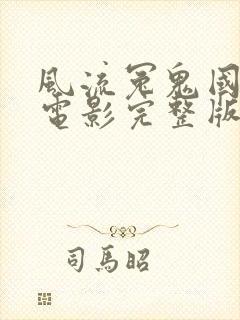 風流冤鬼國
電影完整版
司馬昭